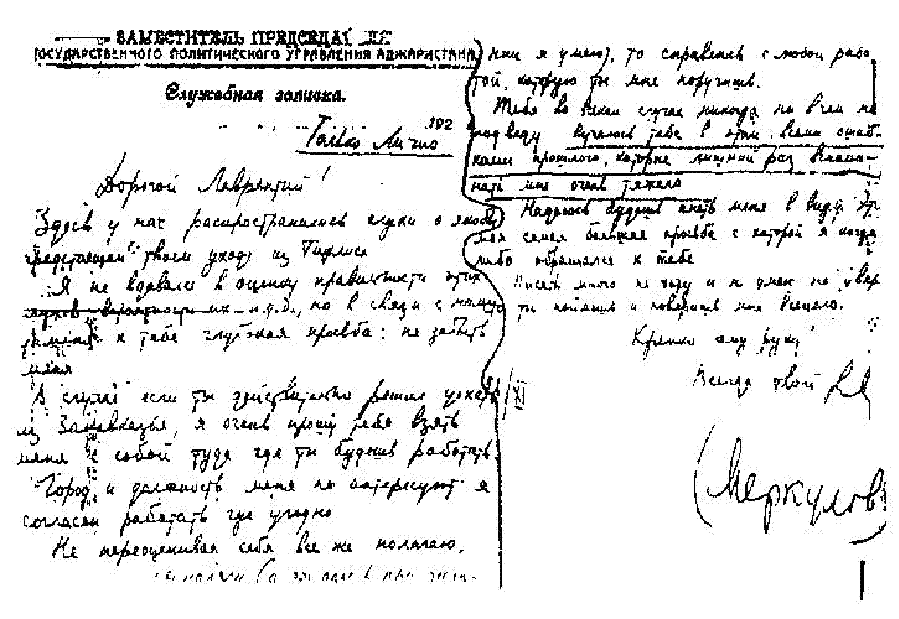 ЗАМЕСТИТЕЛЬ ПРЕДСЕДАТЕЛЯ
ГОСУДАРСТВЕННОГО ПОЛИТИЧЕСКОГО УПРАВЛЕНИЯ АДЖАРИСТАНА
Служебная записка.
192
Лично
Дорогой Лаврентий!
Здесь у нас распространились слухи о якобы
предстоящем твоем уходе из Тифлиса
Я не вдаваясь в оценку правильности этих
слухов вероятности их и.т.д., но в связи с ними
к тебе глубокая просьба: не забыть
меня
В случае если ты действительно решил уехать
из Закавказья, я очень прошу тебя взять
меня с собой туда где ты будешь работать.
Город и должность меня не интересуют я
согласен работать где угодно
Не переоценивая себя все же полагаю,
XI
я умею), то справлюсь с любой рабо
той, которую ты мне поручишь.
Тебя во всяком случае никогда ни в чем не
подведу. Ручаюсь тебе в этом всеми ошиб-
ками прошлого, которые лишний раз вспоми-
нать мне очень тяжело
Надеюсь будешь иметь меня в виду. Это
моя самая большая просьба с которой я когда
либо обращался к тебе
Писать много не хочу и не умею но уверен
ты поймешь и поверишь мне Всецело.
Крепко жму руку!
Всегда твой
(Меркулов)